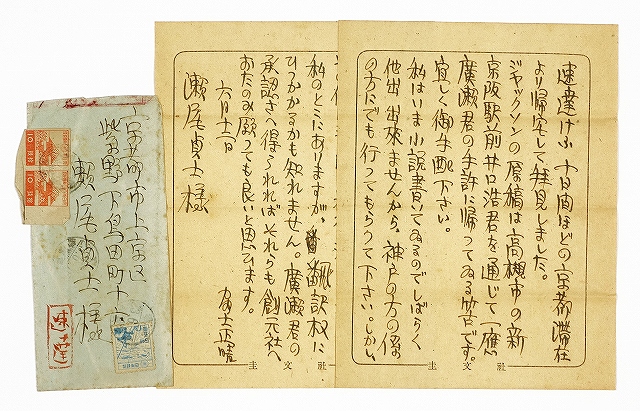 速達けふ十日間ほどの京都滞在
より帰宅して拝見しました。
ジャックソンの原稿は高槻市の新
京阪駅前井口浩君を通じて一應
廣瀬君の手許に帰ってゐる筈です。
宜しく御手配下さい。
私はいま小説書いてゐるのでしばらく
他出出来ませんから、神戸の方の係
の方にでも行ってもらって下さい。しかし
圭文社
私のとこにありますが、翻訳权に
ひっかかるかも知れません。廣瀬君の
承認さへ得られればそれらも創元社へ
おたのみ願っても良いと思ひます。
六月十一日
瀬尾貞士様
圭文社
京都市上京区
紫野下鳥田町十六
瀬尾貞士様
速達